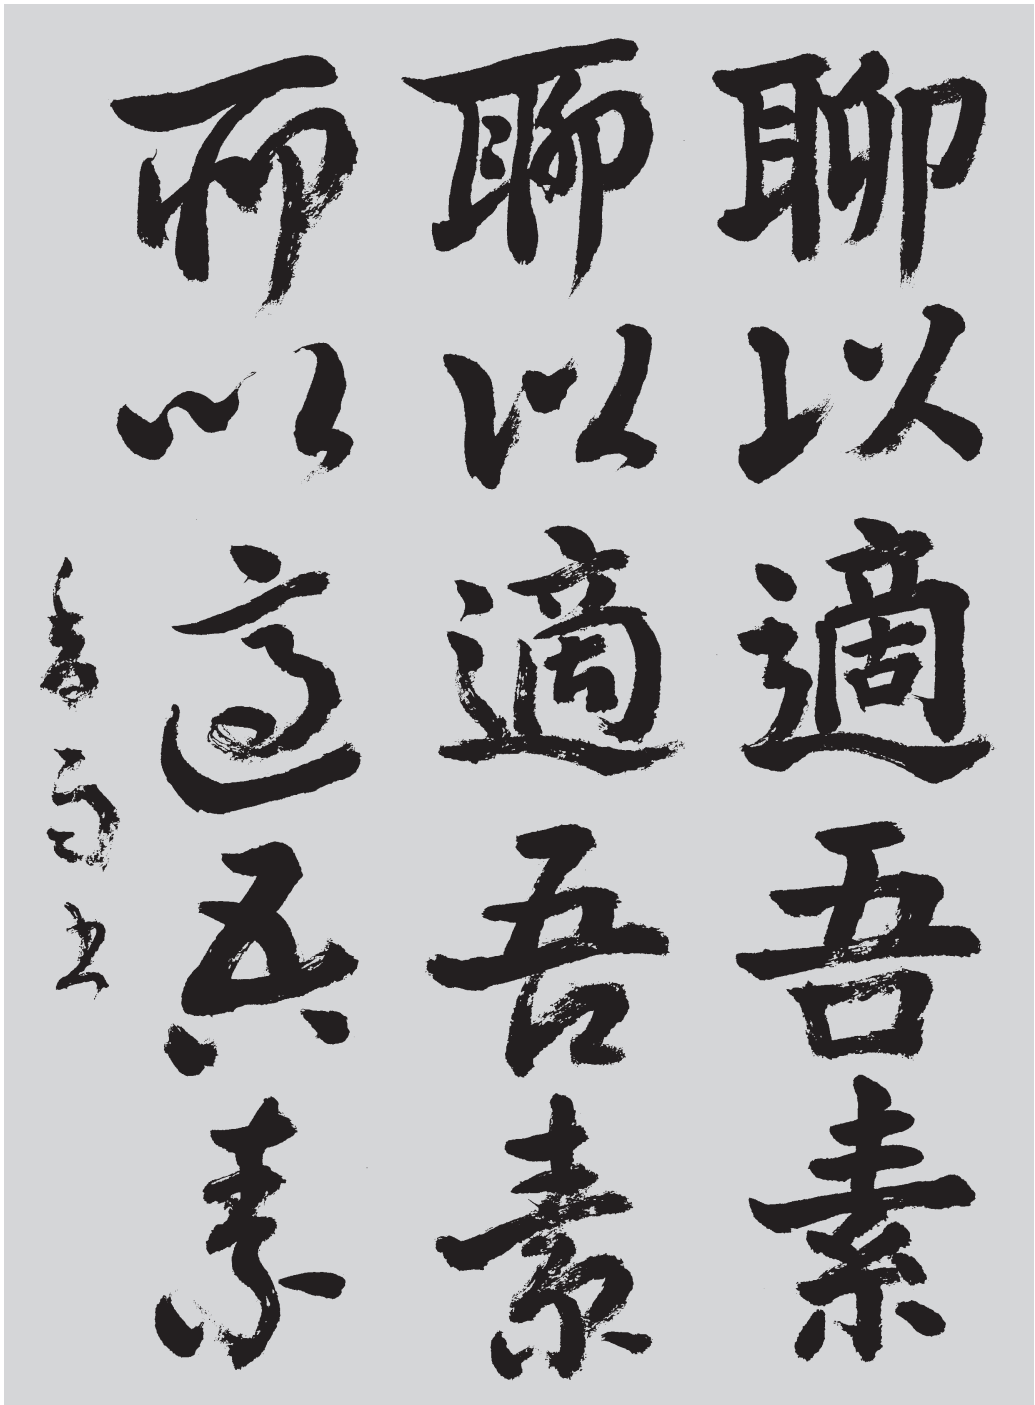 聊以適吾素
聊以適吾素
聊以適吾素
書